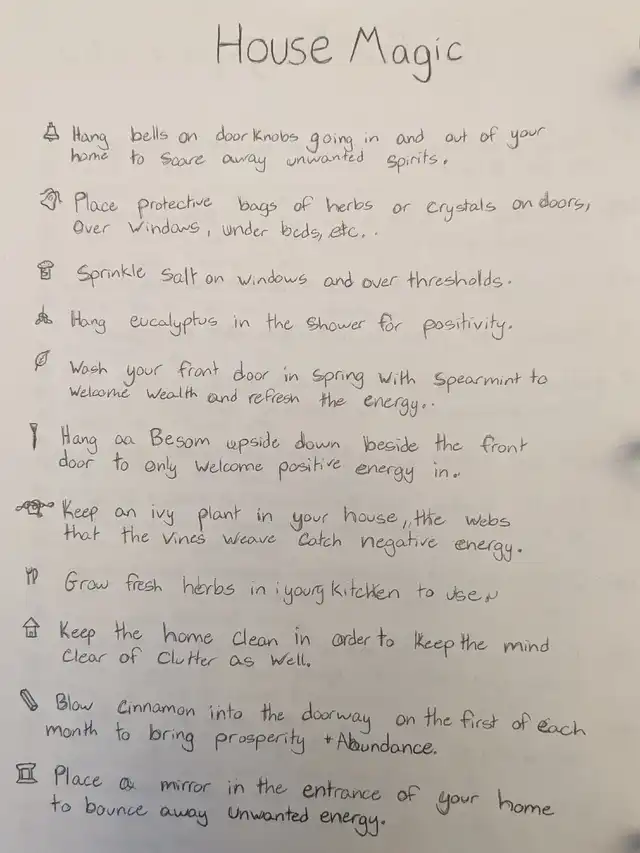 House Magic
Hang bells on doorknobs going in and out of your
home to scare away unwanted spirits.
Place protective bags of herbs or crystals on doors,
Over windows, under beds, etc..
Sprinkle Salt on windows and over thresholds.
Hang eucalyptus in the shower for positivity.
Wash your front door in spring with spearmint to
welcome wealth and refresh the energy..
Hang aa Besom upside down beside the front
door to only welcome positive energy in.
Keep an ivy plant in your house,,the webs
that the vines weave catch negative energy.
Grow fresh herbs in your kitchen to use
Keep the home clean in order to keep the mind
Clear of Clutter as well.
Blow Cinnamon into the doorway on the first of each
month to bring prosperity + Abundance.
Place a mirror in the entrance of your home
to bounce away unwanted energy.